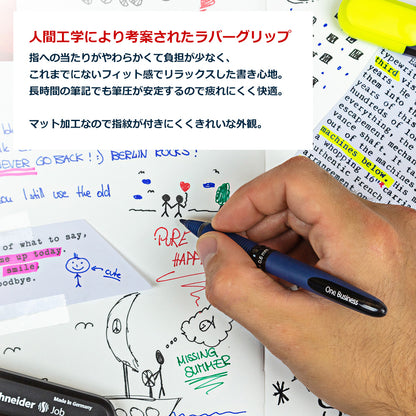 人間工学により考案されたラバーグリップ
指への当たりがやわらかくて負担が少なく、
これまでにないフィット感でリラックスした書き心地。
長時間の筆記でも筆圧が安定するので疲れにくく快適。
マット加工なので指紋が付きにくくきれいな外観。
NEVER GO BACK! :) BERLIN ROCKS!
you I still use the old
third
machines below.
a whopping 16"
of what to say,
me up today.
smile,
goodbye.
cute
PURE
HAPP
0.6 mm
One Business
MISSING
SUMMER
Schneider
Made in Germany
Job